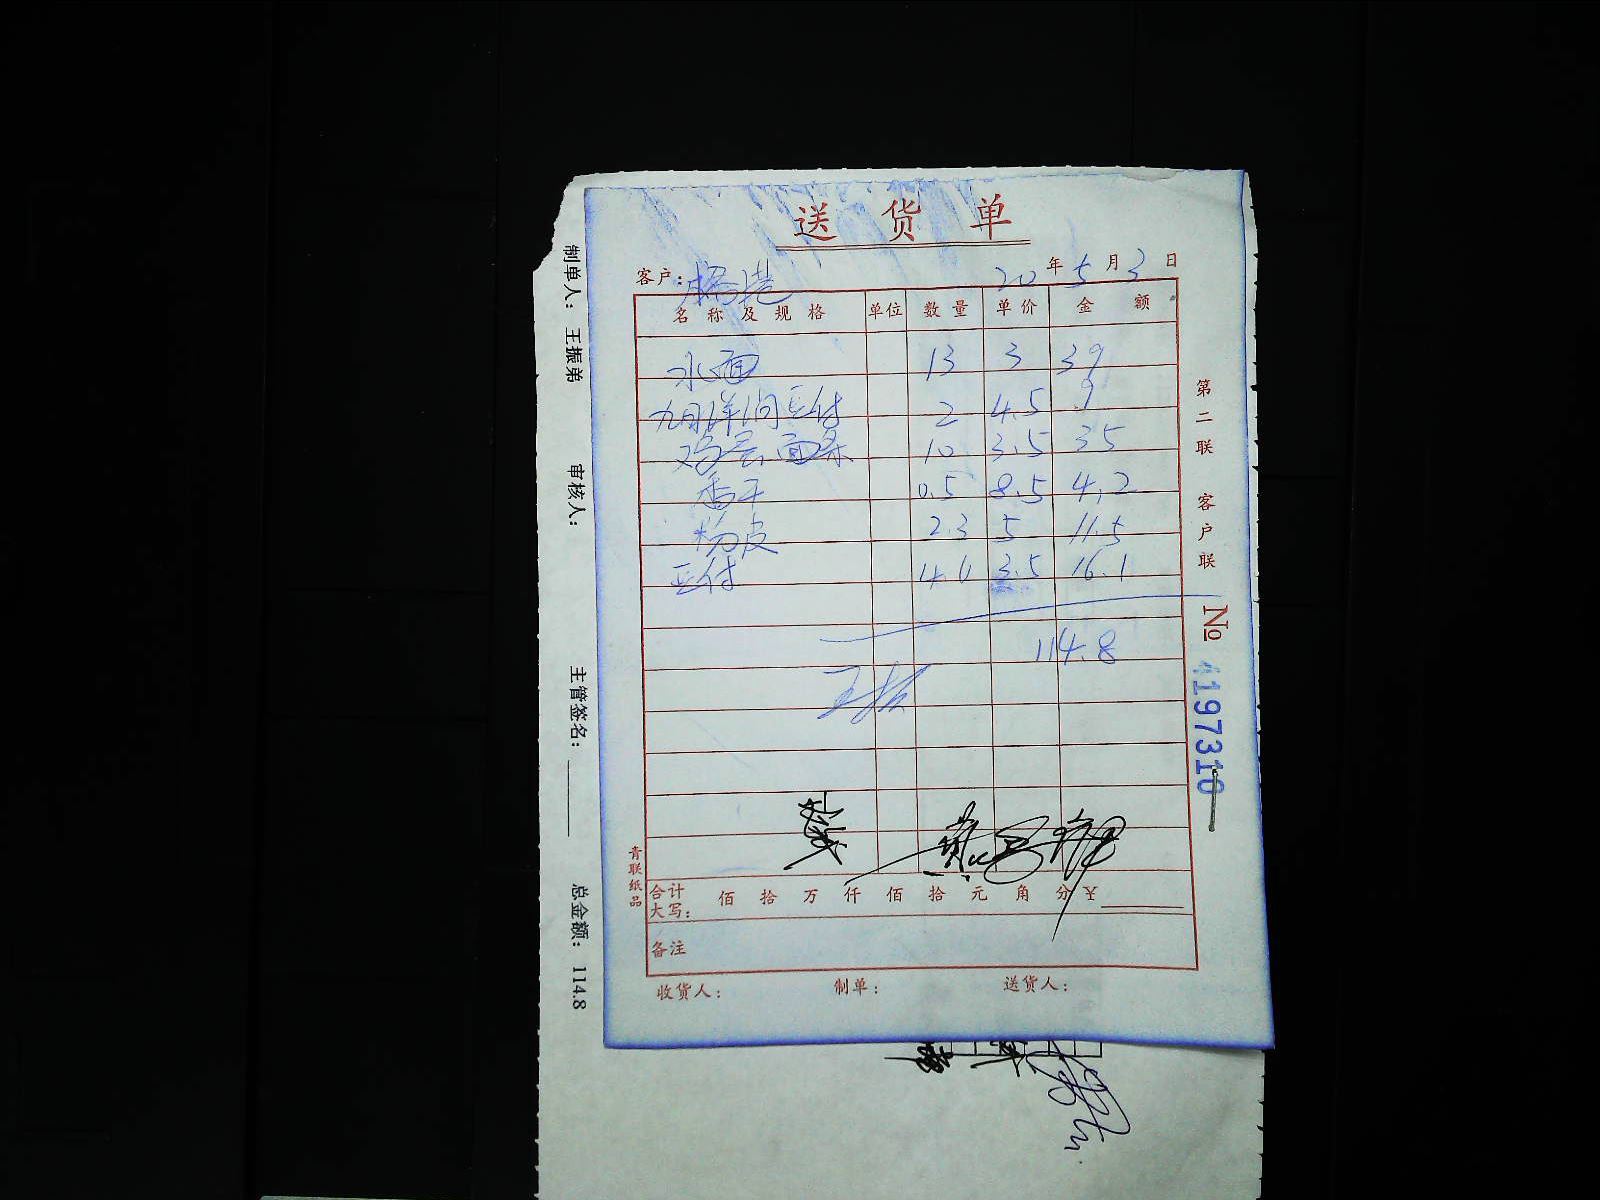 送货单
客户：杨巷 20年5月3日
名称及规格 单位 数量 单价 金额
水面 13 3 39
豆付 2 4.5 9
鸡蛋面条 10 3.5 35
香干 0.5 8.5 4.2
粉皮 2.3 5 11.5
豆付 4.6 3.5 16.1
114.8
王振
合计大写： 佰 拾 万 仟 佰 拾 元 角 分 ¥
备注
收货人： 制单： 送货人：
青联纸品
第二联 客户联
No 4197310
制单人： 王振弟 审核人： 主管签名： 总金额： 114.8